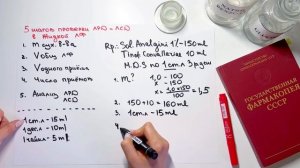 5 шагов проверки ЛРД и ЛСД
в жидкой ЛФ
1. m сух. в-ва
2. V общ ЛФ
3. V одного приёма
4. Число приёмов
5. Анализ ЛРД
ЛСД
1 ст.л - 15 ml
1 дес.л - 10 ml
1 чайн.л - 5 ml
Rp.: Sol. Analgini 1% - 150 ml
10 ml
M.D.S по 1 ст.л 3 р/день
1. m?
1,0 - 100
x - 150
x = 1,0 × 150
100
= 1,5
2. 150 + 10 = 160 ml
3. 1 ст.л - 15 ml
4.
ГОСУДАРСТВЕННАЯ
ФАРМАКОПЕЯ
СССР